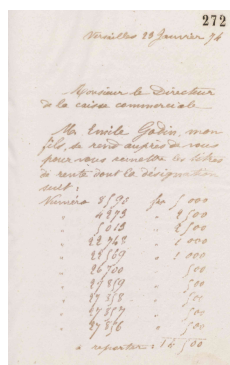 272
Versailles 23 Janvier 74
Monsieur le Directeur
de la caisse commerciale
Mr Emile Godin, mon
fils, se rend auprès de vous
pour vous remettre les titres
de rente dont la désignation
suit :
Numéro 8590 fr 5 000
" 4273 " 2 500
" 5013 " 2 500
" 22 748 " 1 000
" 1 000
" 26 700 " 500
" 27 859 " 500
" 27 858 " 500
" 27 857 " 500
" 27 856 " 500
à reporter : 14 500